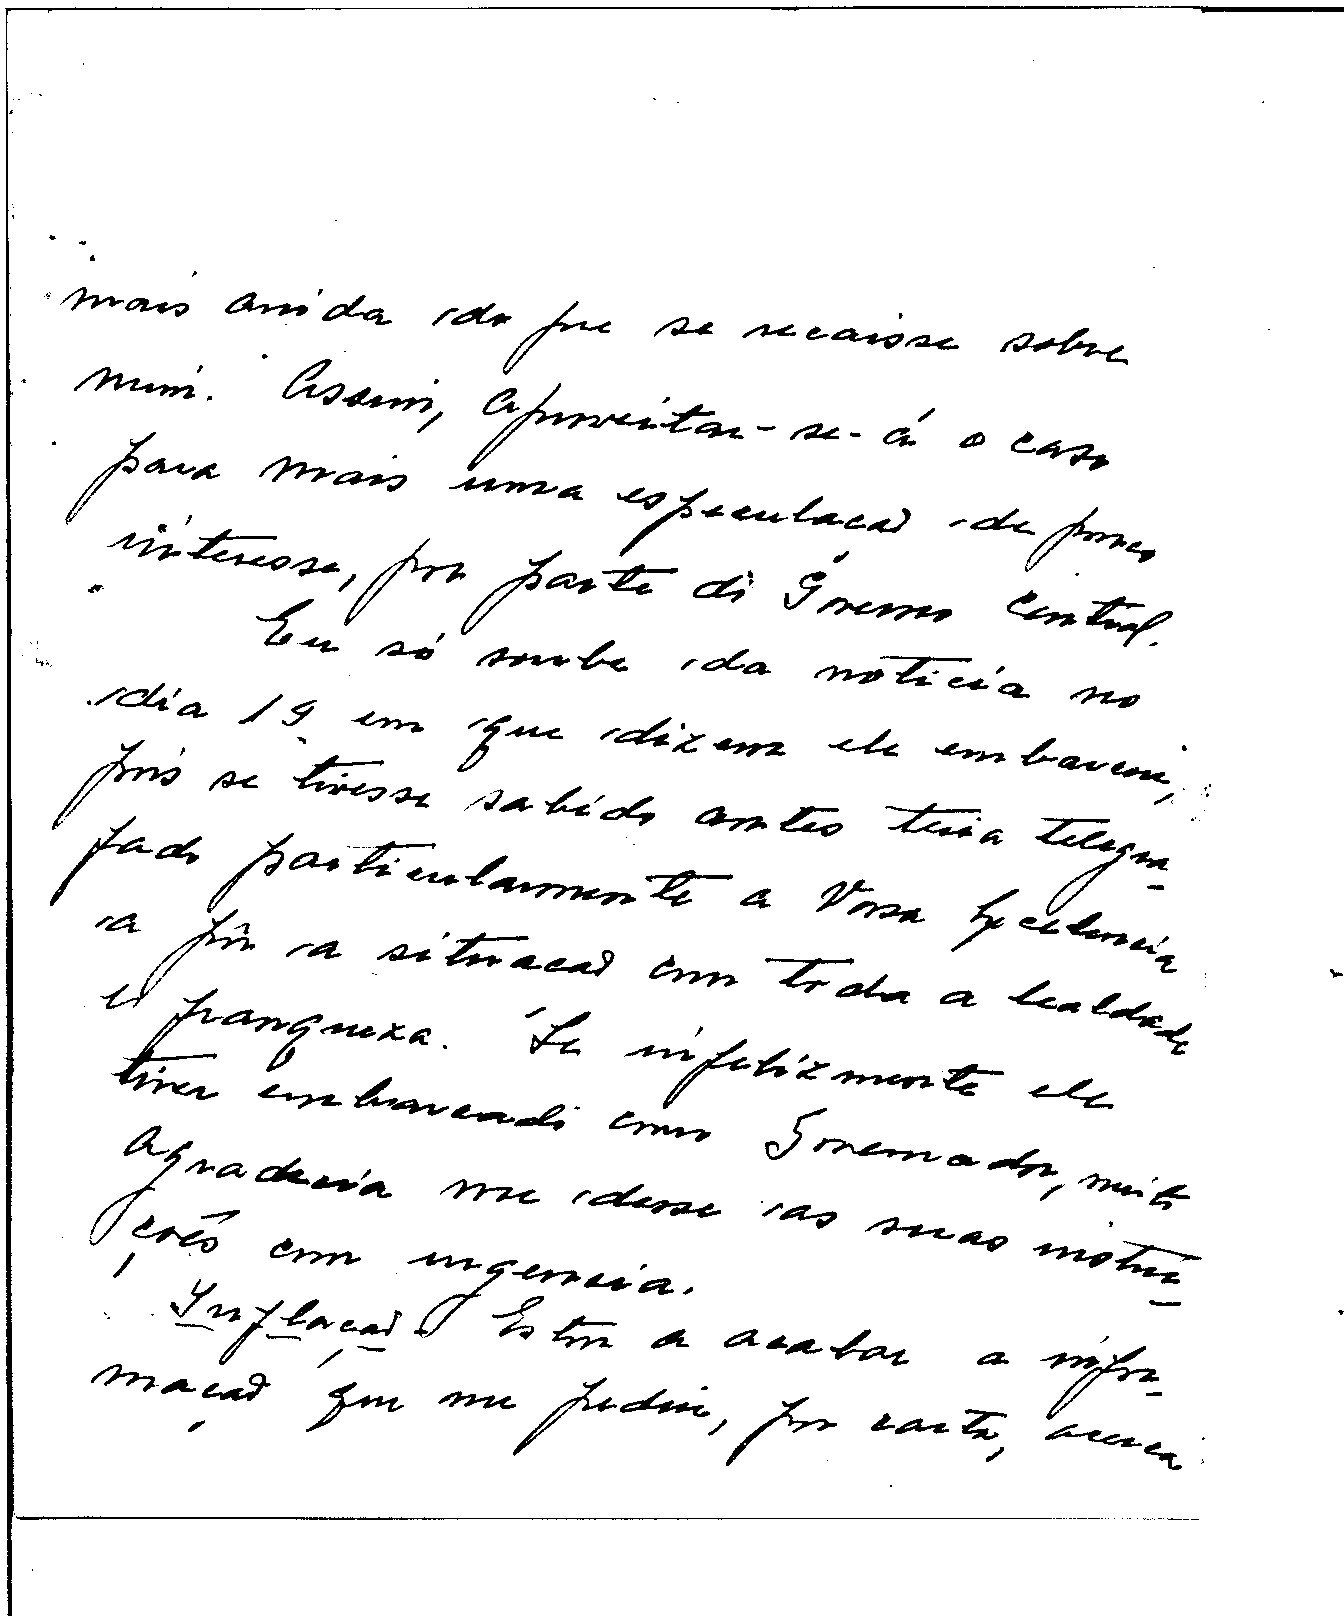 mais ainda do que se recaisse sobre
mim. Assim, aproveitar-se-á o caso
para mais uma especulação de pouco
interesse, por parte do Governo Central.
Eu só soube da noticia no
dia 19 em que dizem ele embarcou,
pois se tivesse sabido antes teria telegra-
fado particularmente a Vossa Excelencia
a pôr a situação com toda a lealdade
e franqueza. Se infelizmente ele
tiver embarcado como Governador, muito
agradecia me desse as suas instru-
ções com urgencia.
Inflação. Estou a acabar a infor-
mação que me pediu, por carta, acerca